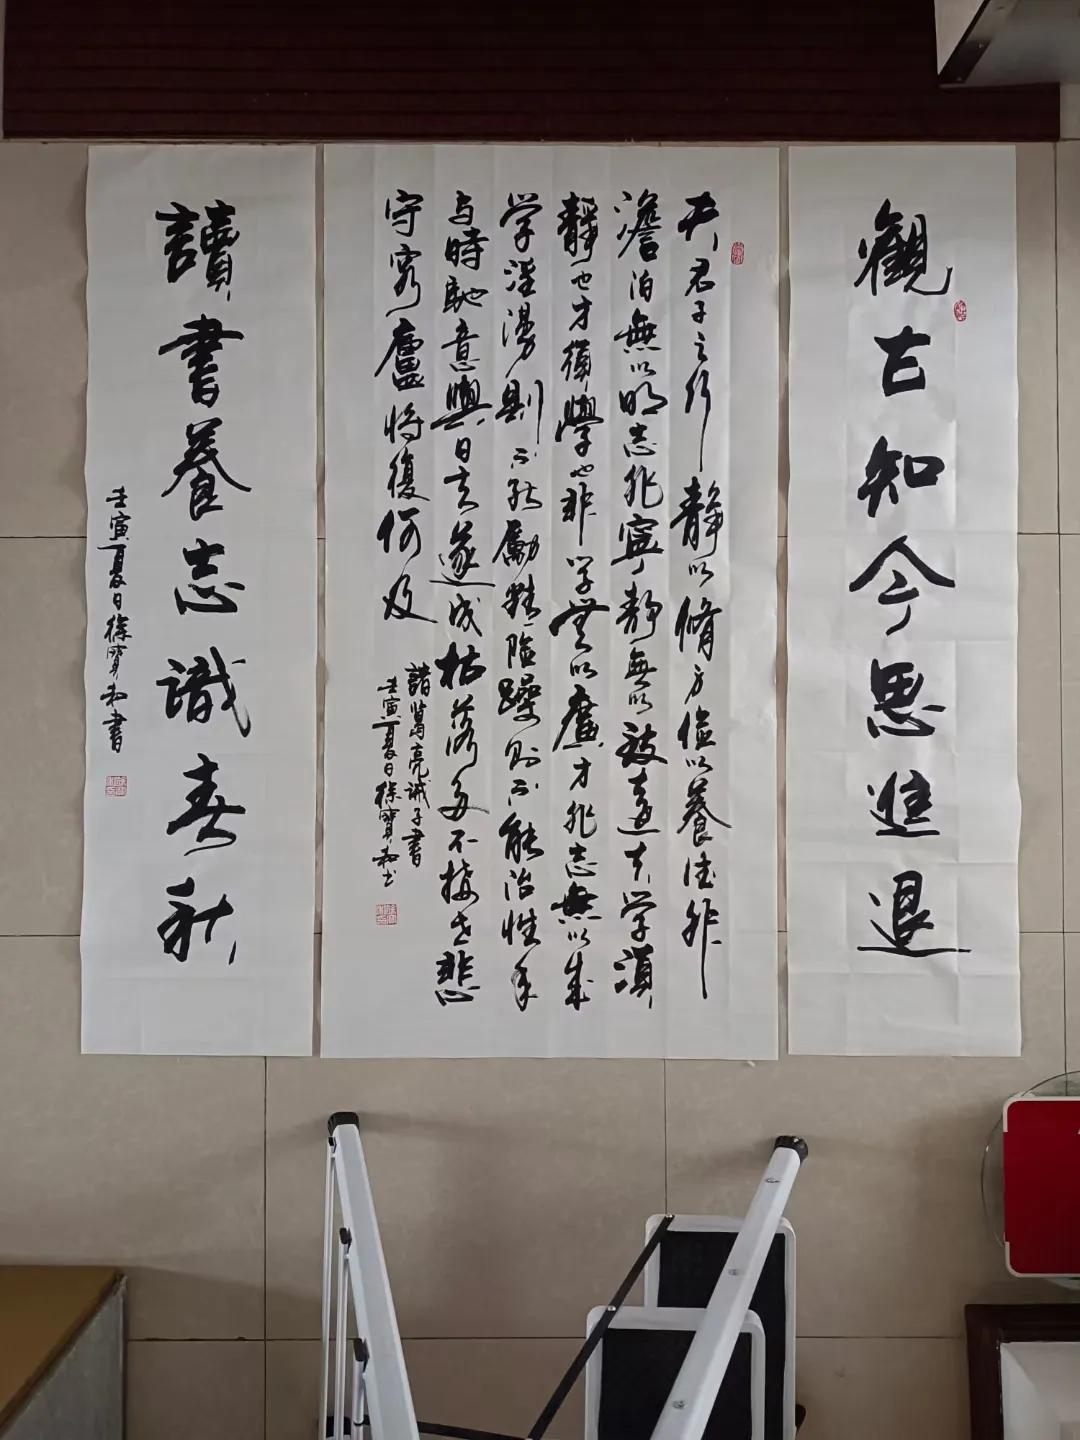 觀古知今思進退
夫君子之行静以脩身儉以養德非
澹泊無以明志非寧静無以致遠夫学須
靜也才須學也非学無以廣才非志無以成
学淫漫則不能勵精險躁則不能治性年
与時馳意與日去遂成枯落多不接世悲
守窮廬將復何及
諸葛亮诫子書
壬寅夏日徐寶和书
讀書養志識春秋
壬寅夏日徐寶和書